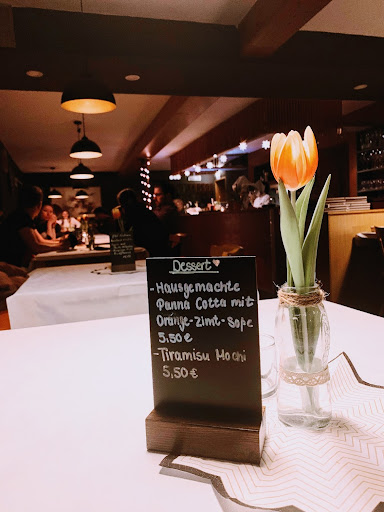 Dessert ♥
-Hausgemachte
Panna Cotta mit
Orange-Zimt-Soße
5,50€
-Tiramisu Mochi
5,50€